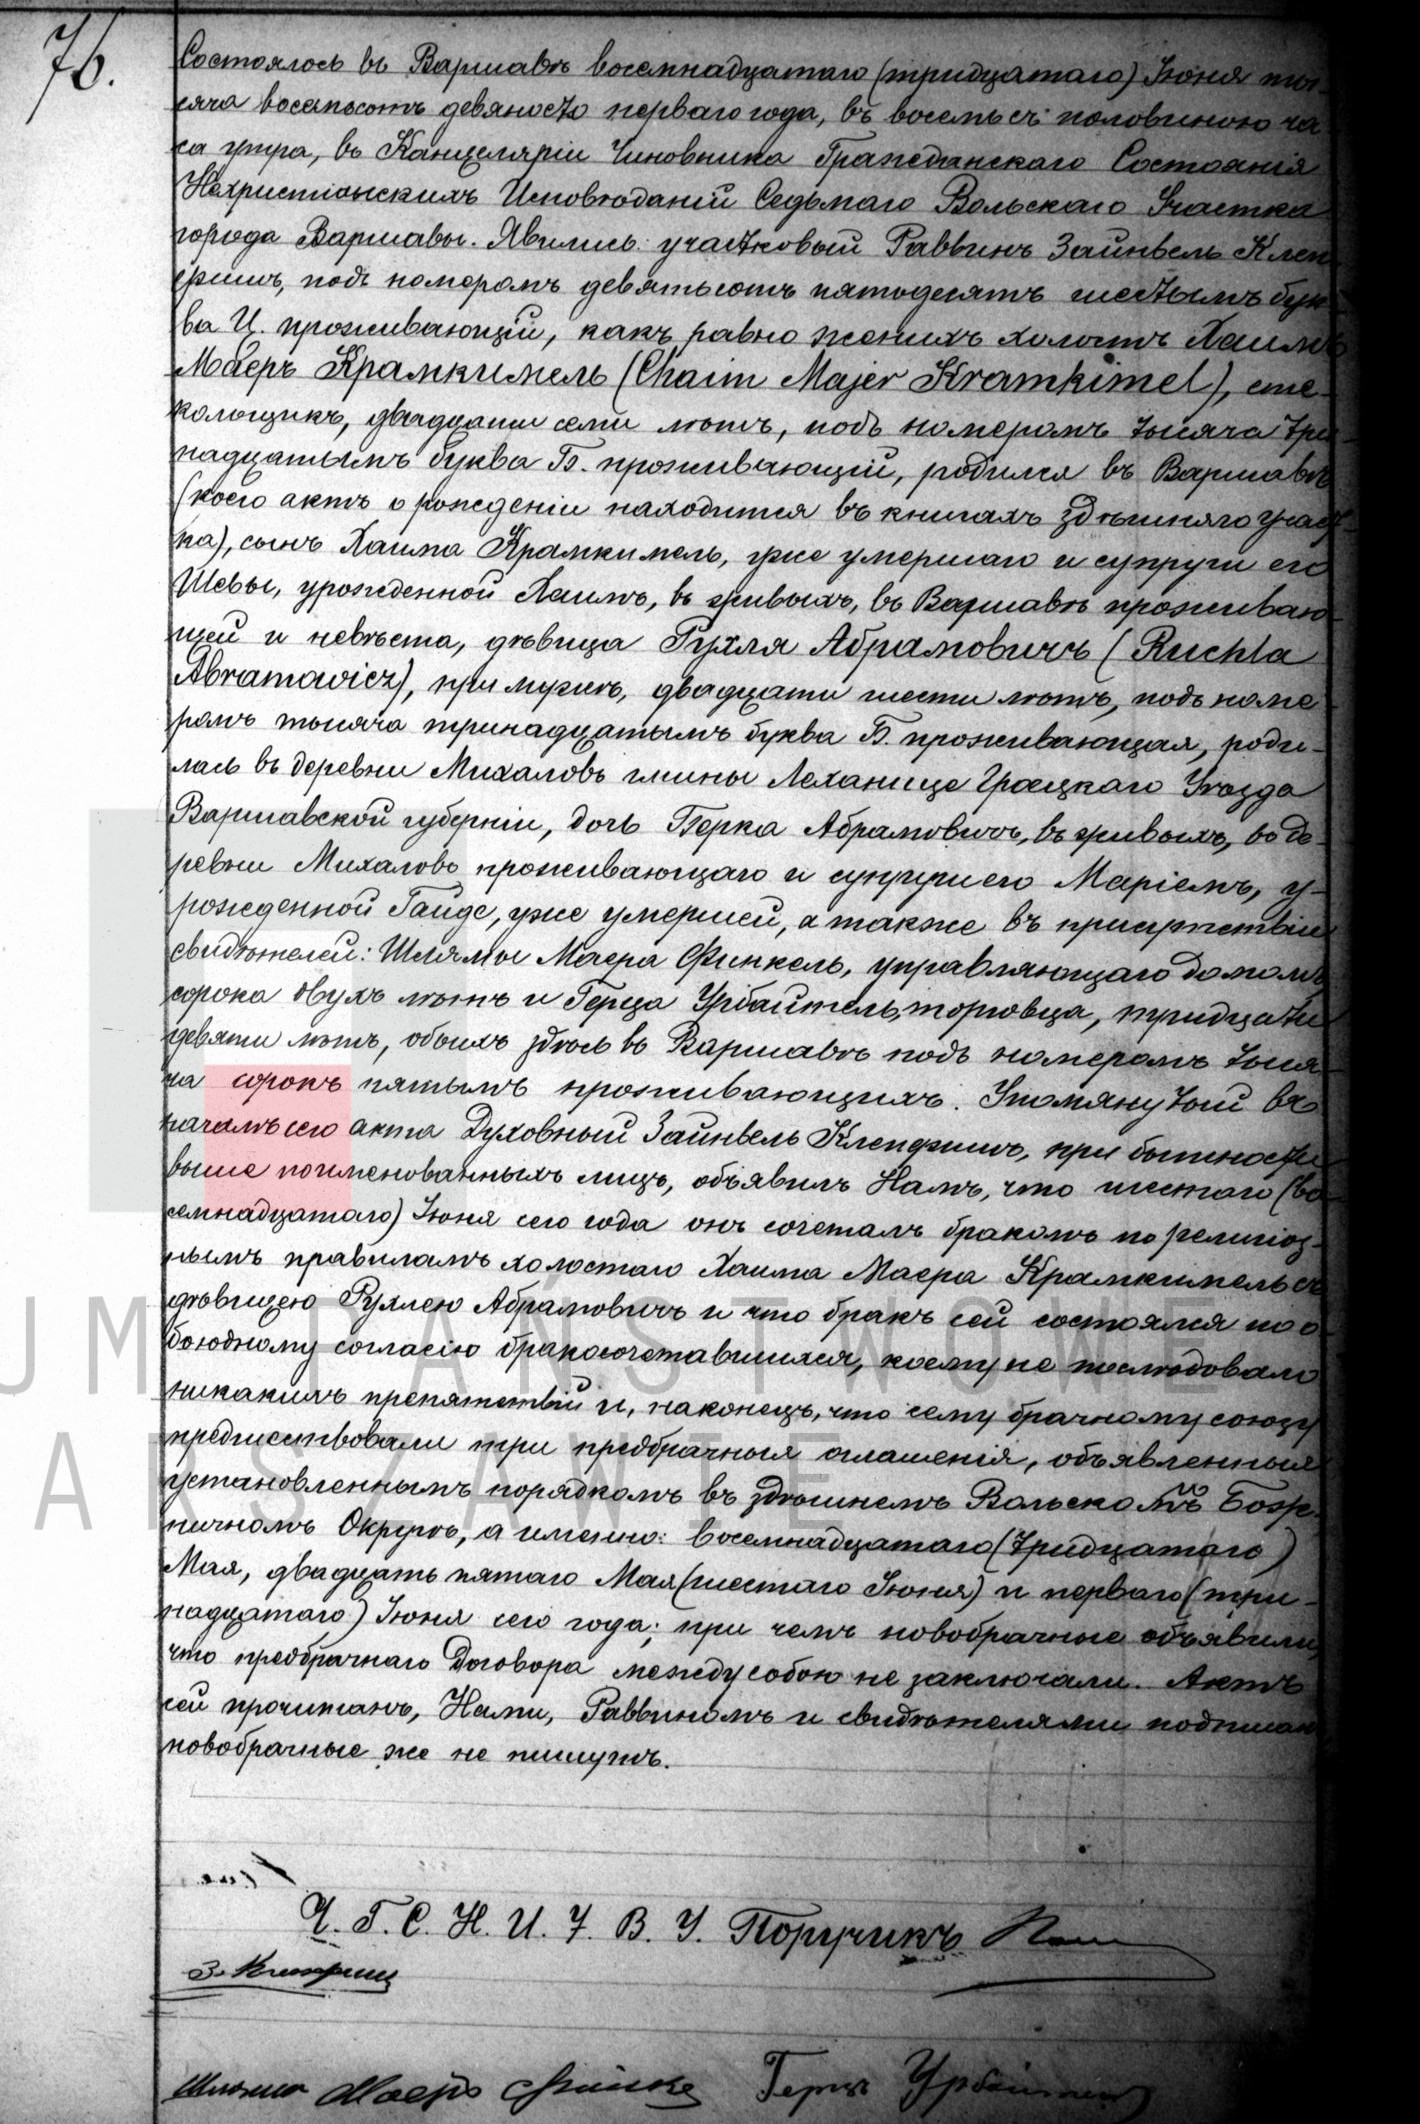 76.
Состоялось въ Варшавѣ восемнадцатаго (тридцатаго) Іюня ты-
сяча восемьсотъ девяносто перваго года, въ восемь съ половиною ча-
са утра, въ Канцеляріи Чиновника Гражданскаго Состоянія
Нехристіанскихъ Исповѣданій Седьмаго Вольскаго Участка
города Варшавы. Явились: участковый Раввинъ Зайнвель Клеп-
фишъ, подъ номеромъ девятьсотъ пятьдесятъ шестымъ бук-
ва Ц. проживающій, какъ равно женихъ холостъ Хаимъ
Маеръ Крамкимель (Chaim Majer Kramkimel), сте-
кольщикъ, двадцати семи лѣтъ, подъ номеромъ тысяча три-
надцатымъ буква Б. проживающій, родился въ Варшавѣ
(коего актъ о рожденіи находится въ книгахъ здѣшняго участ-
ка), сынъ Хаима Крамкимель, уже умершаго и супруги его
Шевы, урожденной Хаимъ, въ живыхъ, въ Варшавѣ проживаю-
щей и невѣста, дѣвица Рухля Абрамовичъ (Ruchla
Abramowicz), при мужѣ, двадцати шести лѣтъ, подъ номе-
ромъ тысяча тринадцатымъ буква Б. проживающая, роди-
лась въ деревни Михаловъ гмины Леханице Гроецкаго Уѣзда
Варшавской губерніи, дочь Берка Абрамовичъ, въ живыхъ, въ де-
ревни Михаловъ проживающаго и супруги его Маріемъ, у-
рожденной Гайде, уже умершей, а также въ присутствіи
свидѣтелей: Шлямы Маера Финкель, управляющаго домомъ,
сорока двухъ лѣтъ и Герца Урбайтель, торговца, тридцати
девяти лѣтъ, обоихъ здѣсь въ Варшавѣ подъ номеромъ тыся-
ча сорокъ пятымъ проживающихъ. Упомянутый въ
началѣ сего акта Духовный Зайнвель Клепфишъ, при бытности
выше поименованныхъ лицъ, объявилъ Намъ, что шестаго (во-
семнадцатаго) Іюня сего года онъ сочеталъ бракомъ по религіоз-
нымъ правиламъ холостаго Хаима Маера Крамкимель съ
дѣвицею Рухлею Абрамовичъ и что бракъ сей состоялся по о-
боюдному согласію бракосочетавшихся, коему не послѣдовало
никакихъ препятствій и, наконецъ, что сему брачному союзу
предшествовали три предбрачныя оглашенія, объявленныя
установленнымъ порядкомъ въ здѣшнемъ Вольскомъ Бож-
ничномъ Округѣ, а именно: восемнадцатаго (тридцатаго)
Мая, двадцать пятаго Мая (шестаго Іюня) и перваго (три-
надцатаго) Іюня сего года; при чемъ новобрачные объявили,
что предбрачнаго Договора между собою не заключали. Актъ
сей прочитанъ, Нами, Раввиномъ и свидѣтелями подписанъ
новобрачные же не пишутъ.
Ч. Г. С. Н. И. 7. В. У. Поручикъ
З. Клепфишъ
Шляма Маеръ Финкель Герцъ Урбайтель
UM PAŃSTWOWE
ARSZAWIE